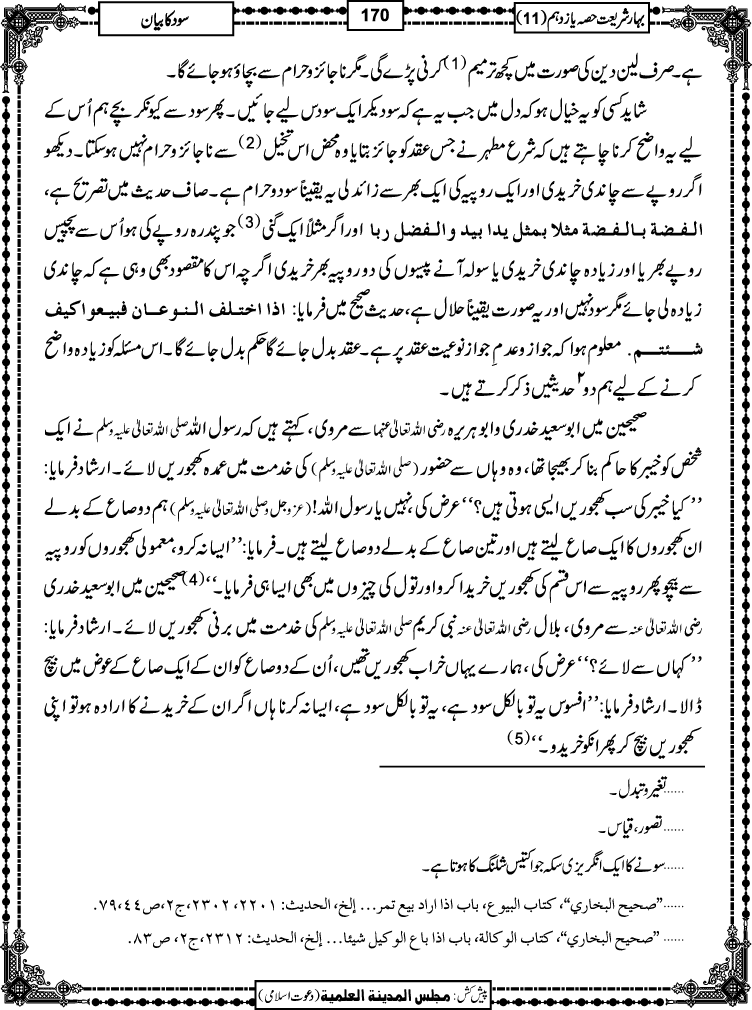 بہار شریعت حصہ یازدہم (11)
170
سود کا بیان
ہے۔ صرف لین دین کی صورت میں کچھ ترمیم (1) کرنی پڑے گی۔ مگر ناجائز و حرام سے بچاؤ ہو جائے گا۔
شاید کسی کو یہ خیال ہو کہ دل میں جب یہ ہے کہ سود دیکر ایک سو دس لیے جائیں۔ پھر سود سے کیونکر بچے ہم اُس کے
لیے یہ واضح کرنا چاہتے ہیں کہ شرع مطہر نے جس عقد کو جائز بتایا وہ محض اس تخیل (2) سے ناجائز و حرام نہیں ہو سکتا۔ دیکھو
اگر روپے سے چاندی خریدی اور ایک روپیہ کی ایک بھر سے زائد لی یہ یقیناً سود و حرام ہے۔ صاف حدیث میں تصریح ہے،
الفضة بالفضة مثلا بمثل یدا بید والفضل ربا اور اگر مثلاً ایک گنی (3) جو پندرہ روپے کی ہو اُس سے پچیس
روپے بھر یا اور زیادہ چاندی خریدی یا سولہ آنے پیسوں کی دو روپیہ بھر خریدی اگرچہ اس کا مقصود بھی وہی ہے کہ چاندی
زیادہ لی جائے مگر سود نہیں اور یہ صورت یقیناً حلال ہے، حدیث صحیح میں فرمایا: اذا اختلف النوعان فبیعوا کیف
شئتم. معلوم ہوا کہ جواز و عدمِ جواز نوعیت عقد پر ہے۔ عقد بدل جائے گا حکم بدل جائے گا۔ اس مسئلہ کو زیادہ واضح
کرنے کے لیے ہم دو ۲ حدیثیں ذکر کرتے ہیں۔
صحیحین میں ابوسعید خدری و ابوہریرہ رضی اللہ تعالیٰ عنہما سے مروی، کہتے ہیں کہ رسول اللہ صلی اللہ تعالیٰ علیہ وسلم نے ایک
شخص کو خیبر کا حاکم بنا کر بھیجا تھا، وہ وہاں سے حضور (صلی اللہ تعالیٰ علیہ وسلم) کی خدمت میں عمدہ کھجوریں لائے۔ ارشاد فرمایا:
’’کیا خیبر کی سب کھجوریں ایسی ہوتی ہیں؟‘‘ عرض کی، نہیں یا رسول اللہ! (عزوجل و صلی اللہ تعالیٰ علیہ وسلم) ہم دو صاع کے بدلے
ان کھجوروں کا ایک صاع لیتے ہیں اور تین صاع کے بدلے دو صاع لیتے ہیں۔ فرمایا: ’’ایسا نہ کرو، معمولی کھجوروں کو روپیہ
سے بیچو پھر روپیہ سے اس قسم کی کھجوریں خریدا کرو اور تول کی چیزوں میں بھی ایسا ہی فرمایا۔‘‘ (4) صحیحین میں ابوسعید خدری
رضی اللہ تعالیٰ عنہ سے مروی، بلال رضی اللہ تعالیٰ عنہ نبی کریم صلی اللہ تعالیٰ علیہ وسلم کی خدمت میں برنی کھجوریں لائے۔ ارشاد فرمایا:
’’کہاں سے لائے؟‘‘ عرض کی، ہمارے یہاں خراب کھجوریں تھیں، اُن کے دو صاع کو ان کے ایک صاع کے عوض میں بیچ
ڈالا۔ ارشاد فرمایا: ’’افسوس یہ تو بالکل سود ہے، یہ تو بالکل سود ہے، ایسا نہ کرنا ہاں اگر ان کے خریدنے کا ارادہ ہو تو اپنی
کھجوریں بیچ کر پھر انکو خریدو۔‘‘ (5)
......تغیر و تبدل۔
......تصور، قیاس۔
......سونے کا ایک انگریزی سکہ جو اکتیس شلنگ کا ہوتا ہے۔
......”صحیح البخاري“، کتاب البیوع، باب اذا اراد بیع تمر... إلخ، الحدیث: ٢٢٠١، ٢٣٠٢، ج٢، ص٤٤، ٧٩.
......”صحیح البخاري“، کتاب الوکالة، باب اذا باع الوکیل شیئا... إلخ، الحدیث: ٢٣١٢، ج٢، ص٨٣.
پیش کش: مجلس المدینة العلمیة (دعوت اسلامی)